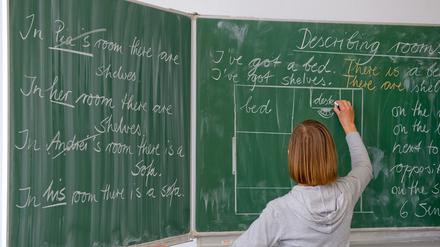 In Pia's room there are
shelves
In her room there are
shelves.
In Andrei's room there is a
sofa.
In his room there is a sofa.
Describing room
I've got a bed. There is a b
I've got shelves. There are shelv
bed
desk
on the
on the
next to
opposit
on the
6 Sen